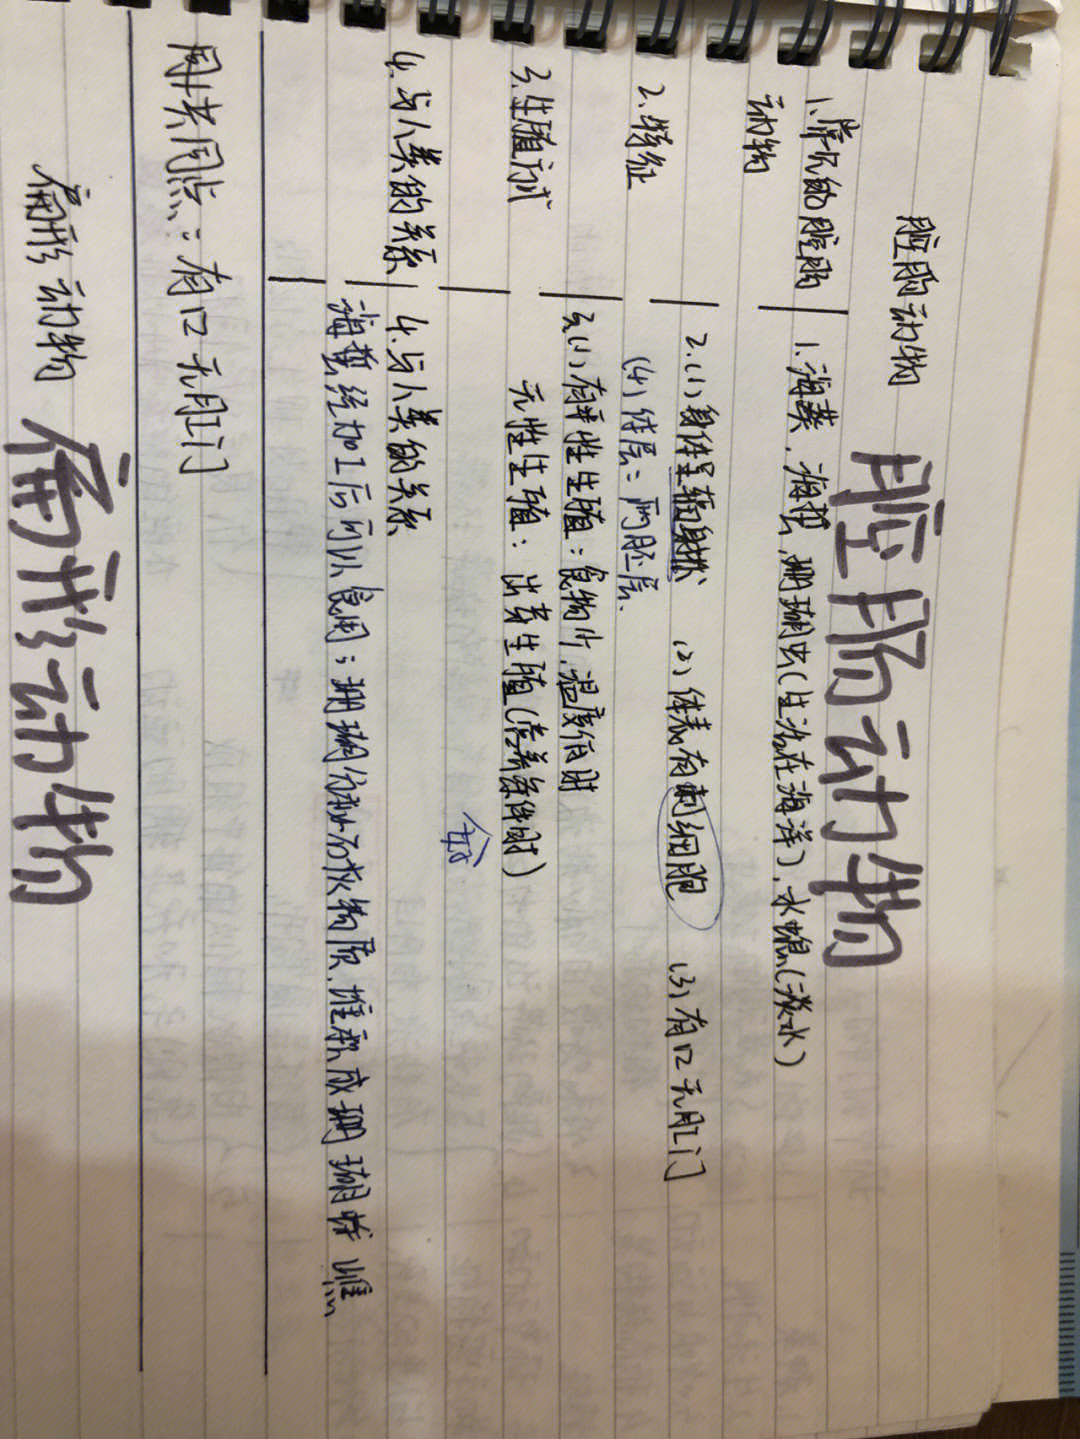 腔肠动物
腔肠动物
1.常见的腔肠
动物
1.海葵，海蜇，珊瑚虫（生活在海洋），水螅（淡水）
2.特征
2.(1)身体呈辐射状 (2)体表有刺细胞 (3)有口无肛门
(4)胚层：两胚层.
3.生殖方式
3.(1)有性生殖：食物少，温度低时
无性生殖：出芽生殖（营养条件时）
4.与人类的关系
4.与人类的关系
海蜇经加工后可以食用；珊瑚分泌石灰物质，堆积成珊瑚礁
共同点：有口无肛门
扁形动物
扁形动物